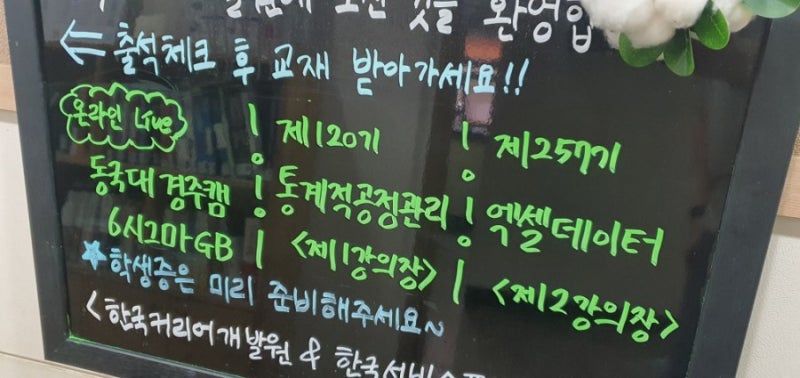 오신 것을 환영합
⇐ 출석체크 후 교재 받아가세요!!
온라인 Live 제120기 제257기
동국대 경주캠 통계적공정관리 엑셀데이터
6시그마GB <제1강의장> <제2강의장>
★학생증은 미리 준비해주세요~
<한국커리어개발원 & 한국서비스